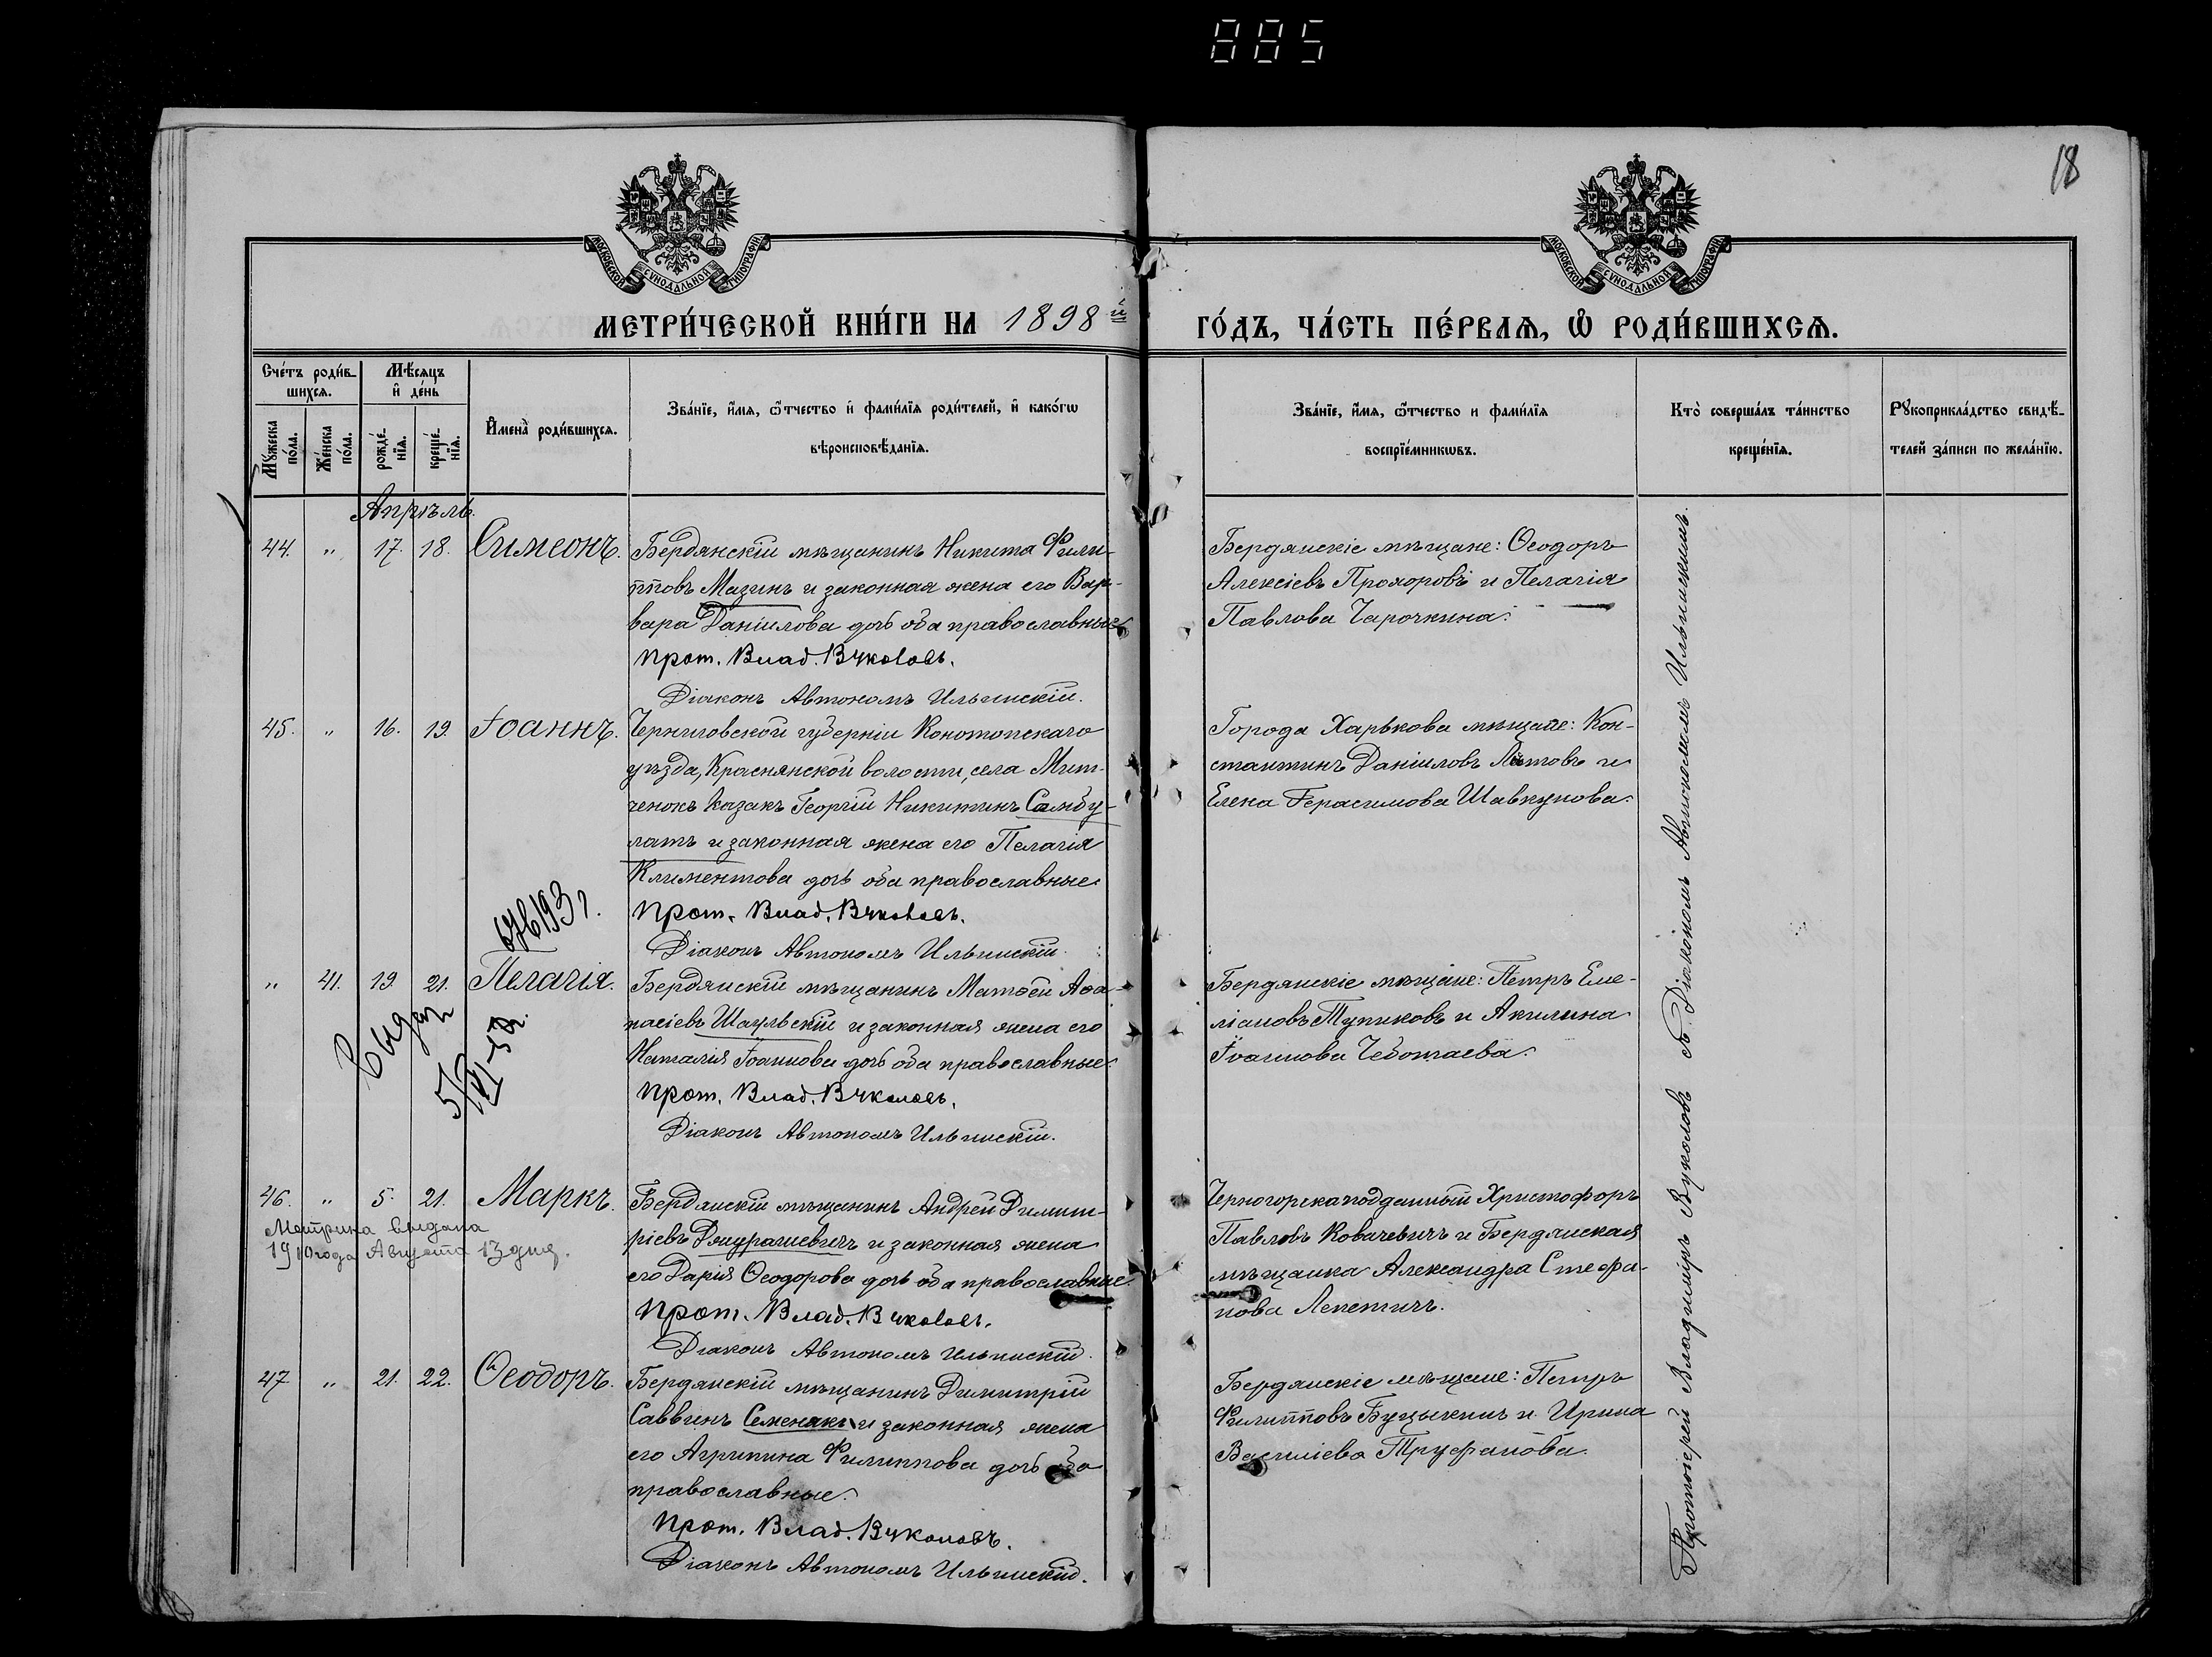 885
18
МОСКОВСКОЙ СѴНОДАЛЬНОЙ ТИПОГРАФІИ
МОСКОВСКОЙ СѴНОДАЛЬНОЙ ТИПОГРАФІИ
МЕТРИ́ЧЕСКОЙ КНИ́ГИ НА 1898й
ГО́ДЪ, ЧА́СТЬ ПЕ́РВАѦ, Ѽ РОДИ́ВШИХСѦ.
Сче́тъ роди́в-
шихсѧ.
Мѣ́сѧцъ
и҆ де́нь
Мꙋ́жеска
по́ла.
Же́нска
по́ла.
рожде́-
нїѧ.
креще́-
нїѧ.
И҆мена̀ роди́вшихсѧ.
Зва́нїе, и҆́мѧ, ѿ́чество и҆ фами́лїѧ роди́телей, и҆ како́гѡ
вѣроисповѣ́данїѧ.
Зва́нїе, и҆́мѧ, ѿ́чество и фами́лїѧ
воспрїе́мникѡвъ.
Кто̀ соверша́лъ та́инство
креще́нїѧ.
Рꙋкоприкла́дство свидѣ́-
телей за́писи по жела́нїю.
Апрѣль.
44. " 17. 18. Симеонъ.
Бердянскій мѣщанинъ Никита Фили-
пповъ Мазинъ и законная жена его Вар-
вара Даніилова дочь оба православные
Прот. Влад. Вуколовъ.
Діаконъ Автономъ Ильинскій.
Бердянскіе мѣщане: Ѳеодоръ
Алексіевъ Прохоровъ и Пелагія
Павлова Чарочкина.
45. " 16. 19. Іоаннъ.
Черниговской губерніи Конотопскаго
уѣзда, Краснянской волости, села Мит-
ченокъ казакъ Георгій Никитинъ Самбу-
латъ и законная жена его Пелагія
Климентова дочь оба православные.
Прот. Влад. Вуколовъ.
Діаконъ Автономъ Ильинскій.
Города Харькова мѣщане: Кон-
стантинъ Даніиловъ и
Елена Герасимова Шавкунова.
" 41. 19. 21. Пелагія.
Бердянскій мѣщанинъ Матѳей Аѳа-
насіевъ Шаульскій и законная жена его
Наталія Іоаннова дочь оба православные.
Прот. Влад. Вуколовъ.
Діаконъ Автономъ Ильинскій.
Бердянскіе мѣщане: Петръ Еме-
ліановъ Тупиковъ и Акилина
Іоаннова Чеботаева.
46. " 5. 21. Маркъ.
Метрика выдана
1910 года Августа 13 дня.
Бердянскій мѣщанинъ Андрей Димит-
ріевъ и законная жена
его Дарія Ѳеодорова дочь оба православные.
Прот. Влад. Вуколовъ.
Діаконъ Автономъ Ильинскій.
Черногорскаподданный Христофоръ
Павловъ Ковачевичъ и Бердянская
мѣщанка Александра Стефа-
нова Лепетичъ.
47 " 21. 22. Ѳеодоръ.
Бердянскій мѣщанинъ Димитрій
Саввинъ Семенякъ и законная жена
его Агрипина Филиппова дочь оба
православные.
Прот. Влад. Вуколовъ.
Діаконъ Автономъ Ильинскій.
Бердянскіе мѣщане: Петръ
Филипповъ и Ирина
Василіева Труфанова.
Протоіерей Владиміръ Вуколовъ съ Діакономъ Автономомъ Ильинскимъ.